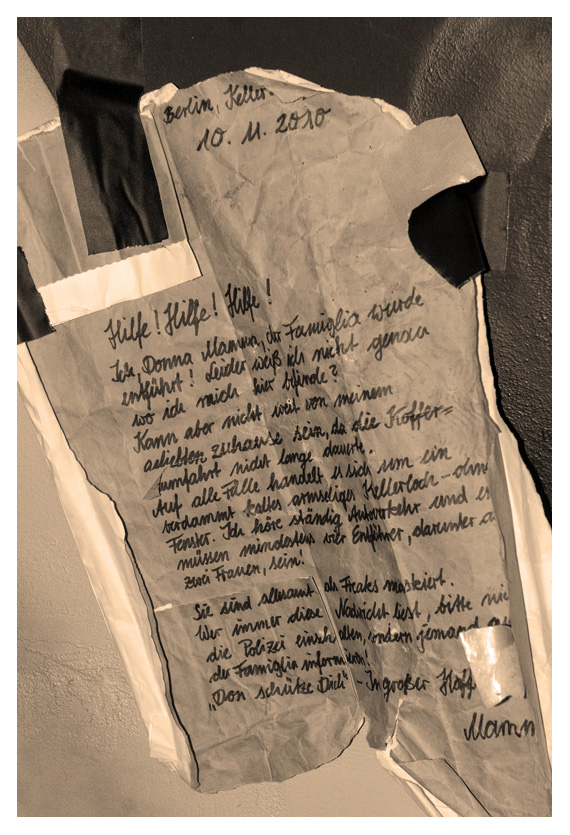 Berlin, Keller.
10. 11. 2010
Hilfe! Hilfe! Hilfe!
Ich, Donna Mamma, der Famiglia wurde
entführt! Leider weiß ich nicht genau
wo ich mich hier befinde?
Kann aber nicht weit von meinem
geliebten zuhause sein, da die Koffer=
rumfahrt nicht lange dauerte.
Auf alle Fälle handelt es sich um ein
verdammt kaltes armseliges Kellerloch - ohne
Fenster. Ich höre ständig Autoverkehr und es
müssen mindestens vier Entführer, darunter
zwei Frauen, sein!
Sie sind allesamt als Freaks maskiert.
Wer immer diese Nachricht liest, bitte
die Polizei einschalten, sondern jemand
der Famiglia informieren!
„Don schütze Dich“ - In großer Hoff
Mamm